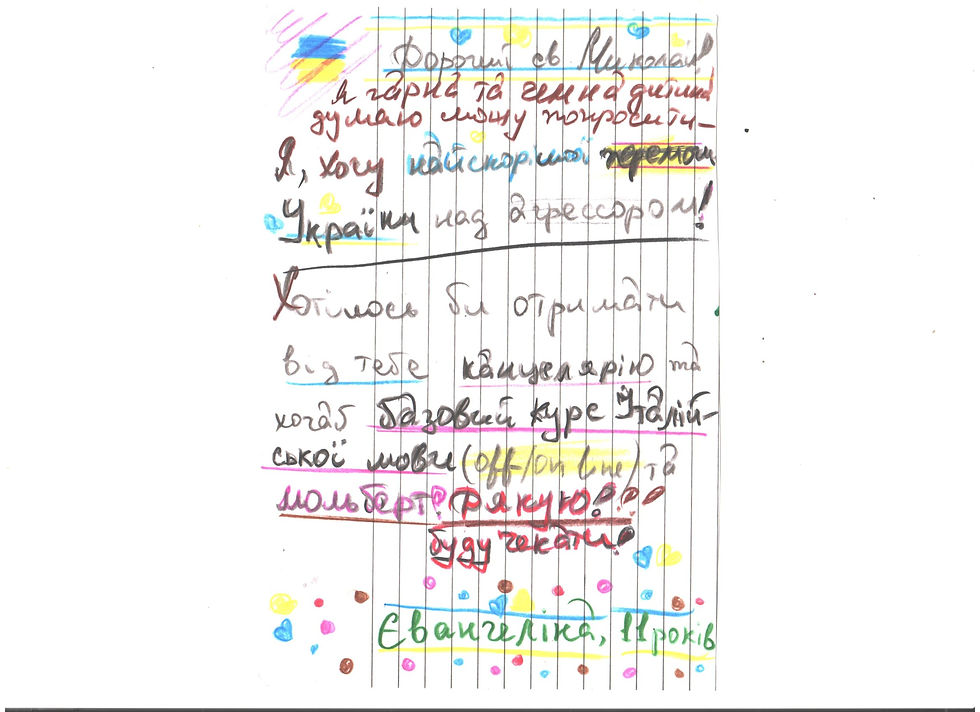 Дорогий св Миколай!
Я гарна та чемна дитина
думаю можу попросити-
Я, хочу найскорішої перемоги
України над агрессором!
Хотілось би отримати
від тебе канцелярію та
хочаб базовий курс Італій-
ської мови (off-/on line) та
мольберт? Дякую!
буду чекати!
Євангеліна, 11 років